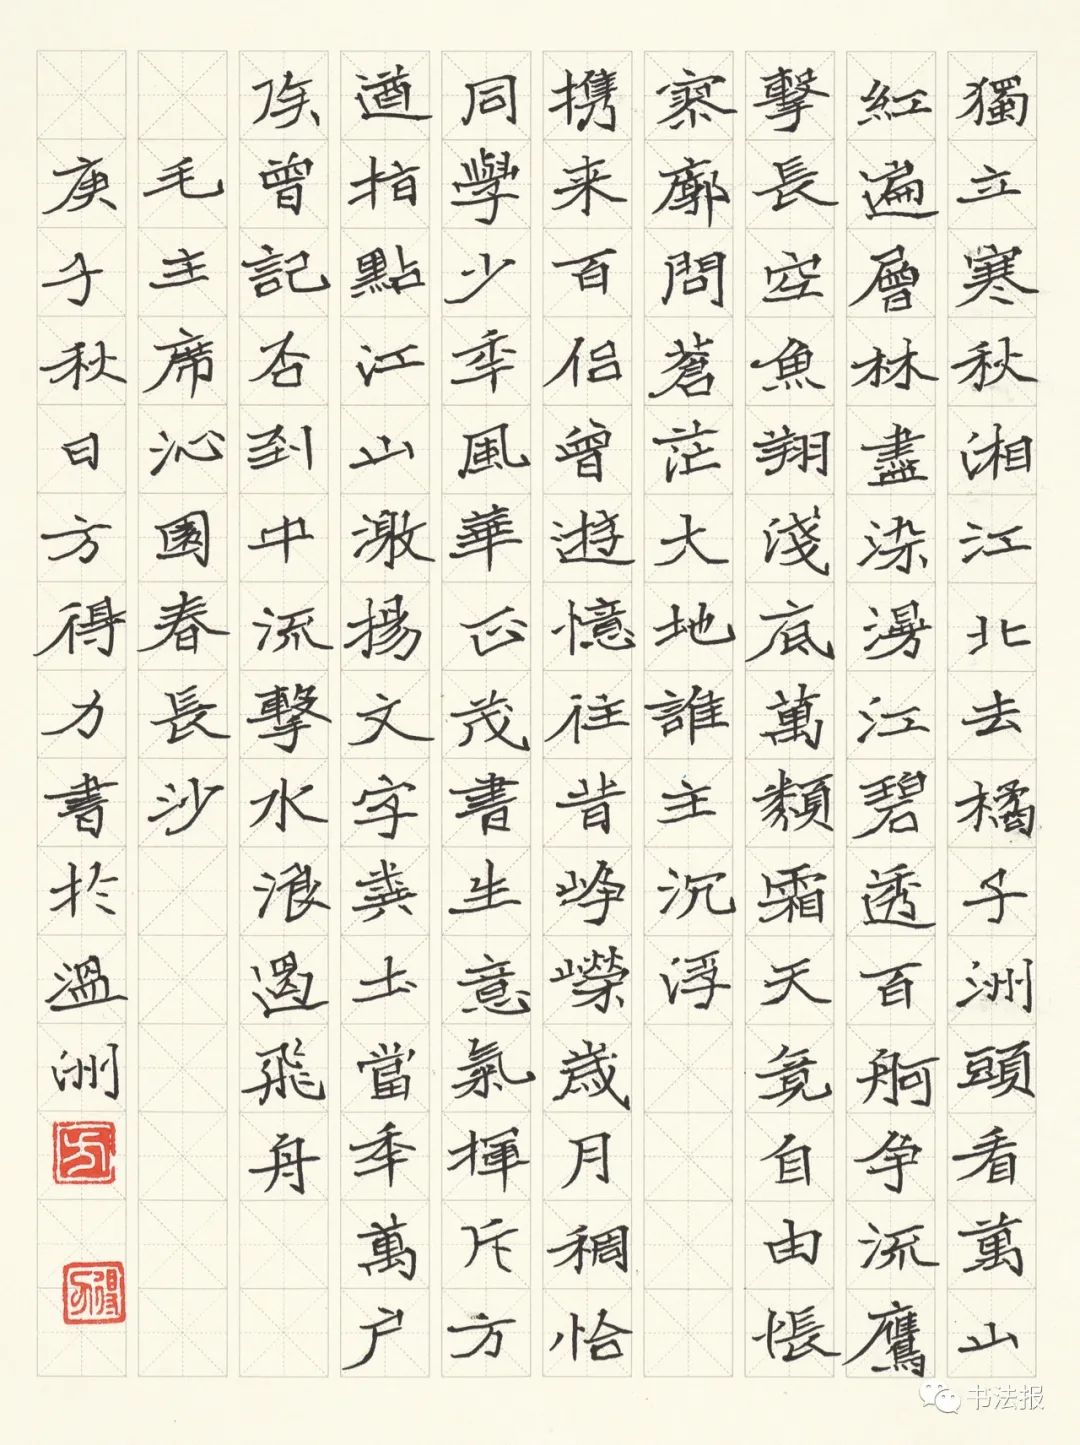 獨立寒秋湘江北去橘子洲頭看萬山
紅遍層林盡染漫江碧透百舸争流鷹
擊長空魚翔淺底萬類霜天竟自由悵
寥廓問蒼茫大地誰主沉浮
携来百侣曾遊憶往昔崢嶸歲月稠恰
同學少年風華正茂書生意氣揮斥方
遒指點江山激揚文字糞土當年萬户
侯曾記否到中流擊水浪遏飛舟
毛主席沁園春長沙
庚子秋日方得力書於溫洲
方
得力
书法报